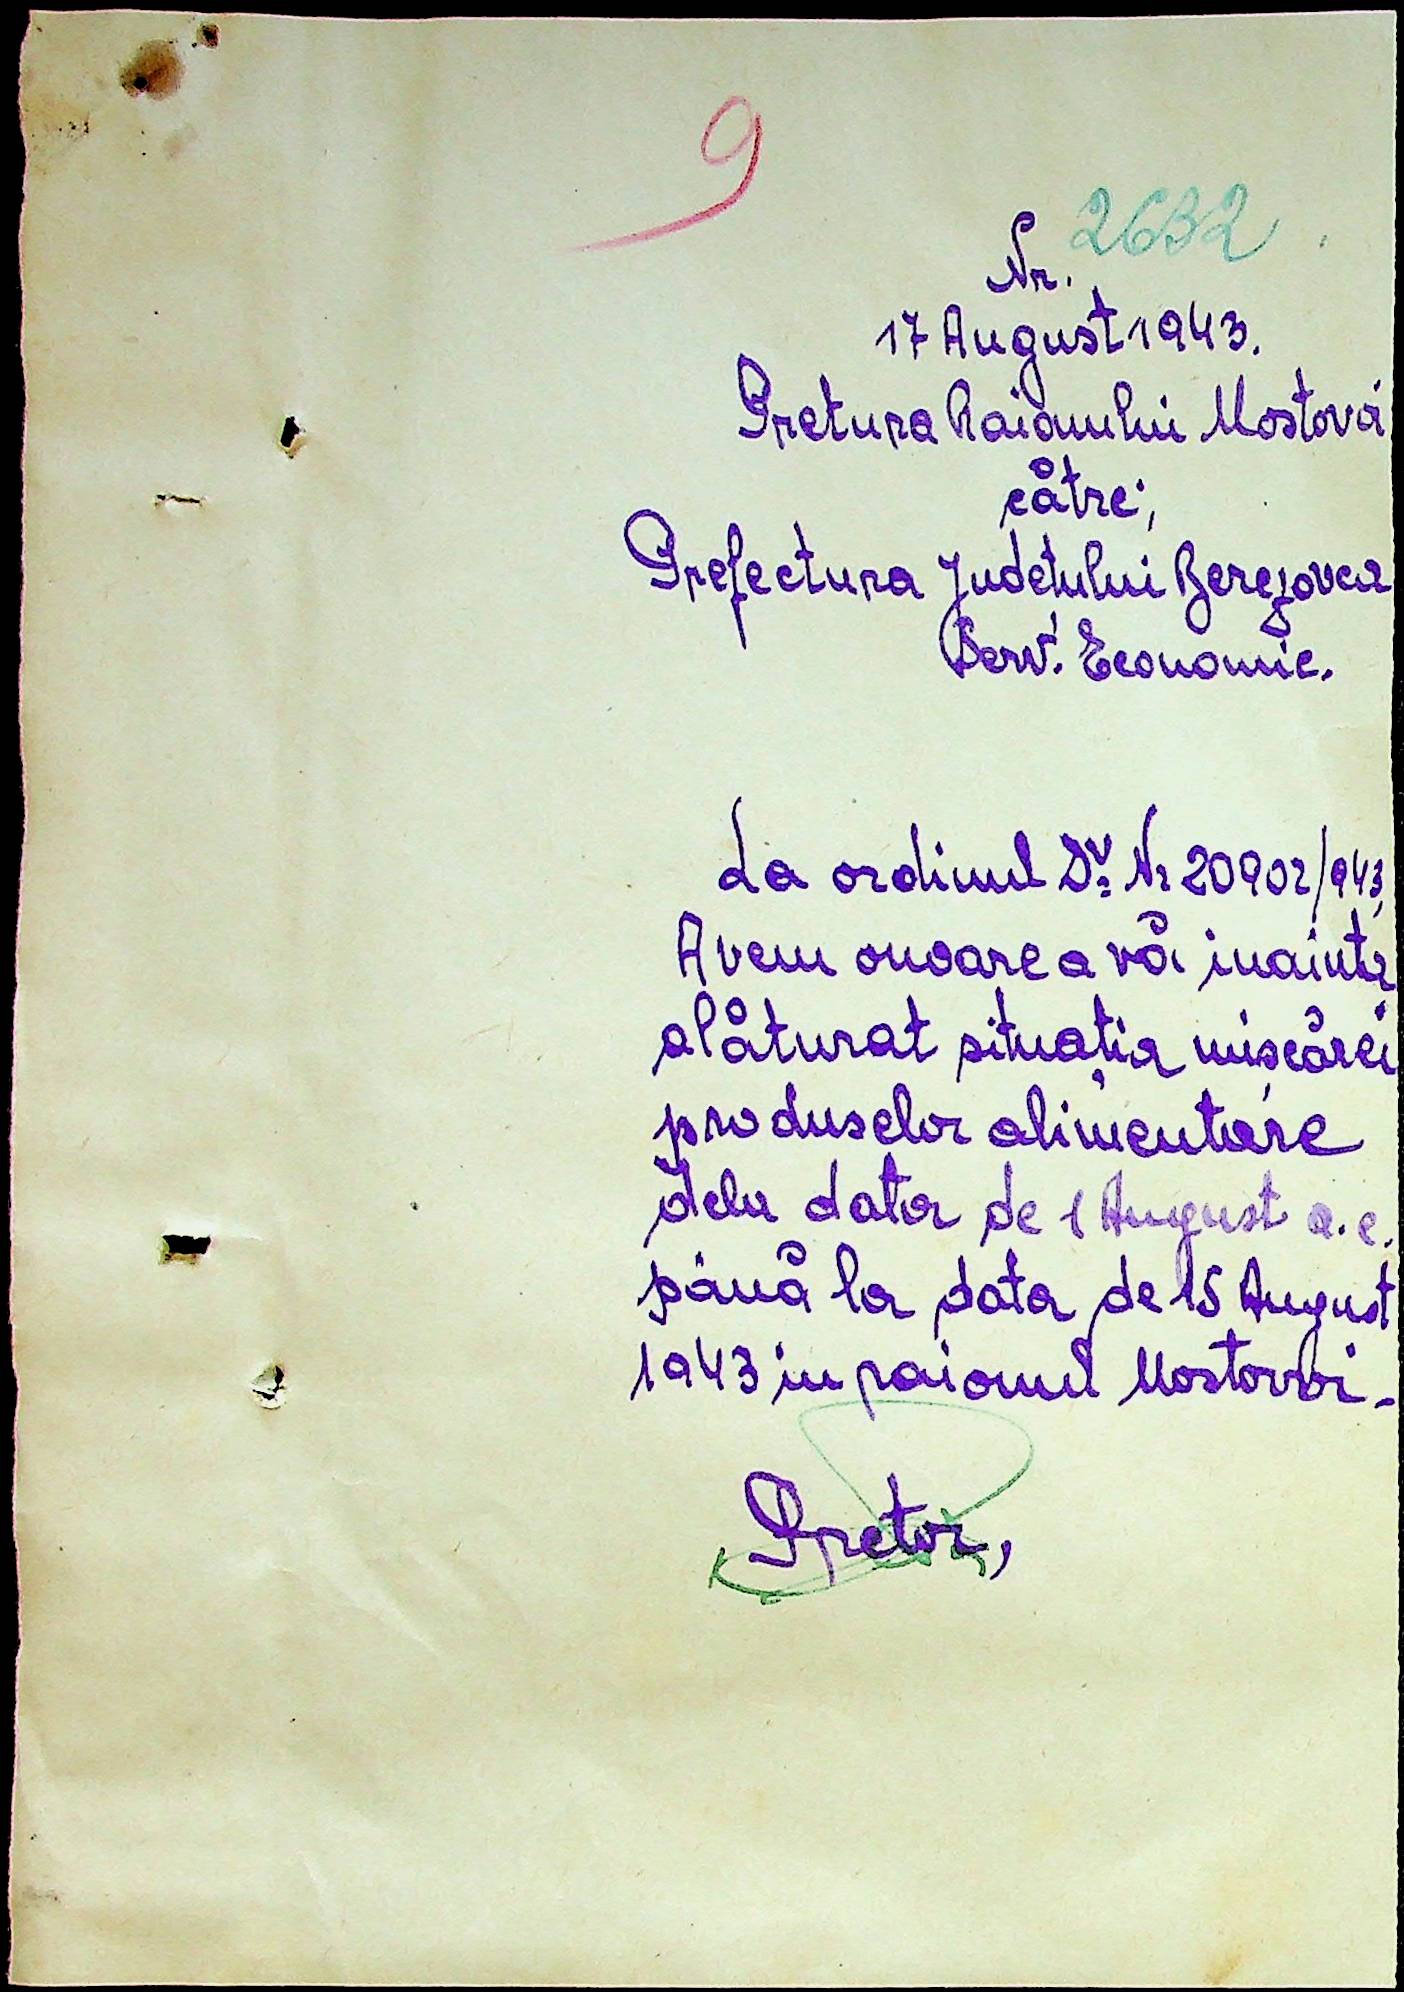 9
2632
Nr.
17 August 1943.
Pretura Raionului Mostovoi
către;
Prefectura Județului Berezovca
Serv. Economic.
La ordinul Dv. Nr 20902/943,
Avem onoare a vă inainta
alăturat situația mișcărei
produselor alimentare
dela data de 1 August a.c.
până la data de 15 August
1943 in raionul Mostovoi.
Pretor,